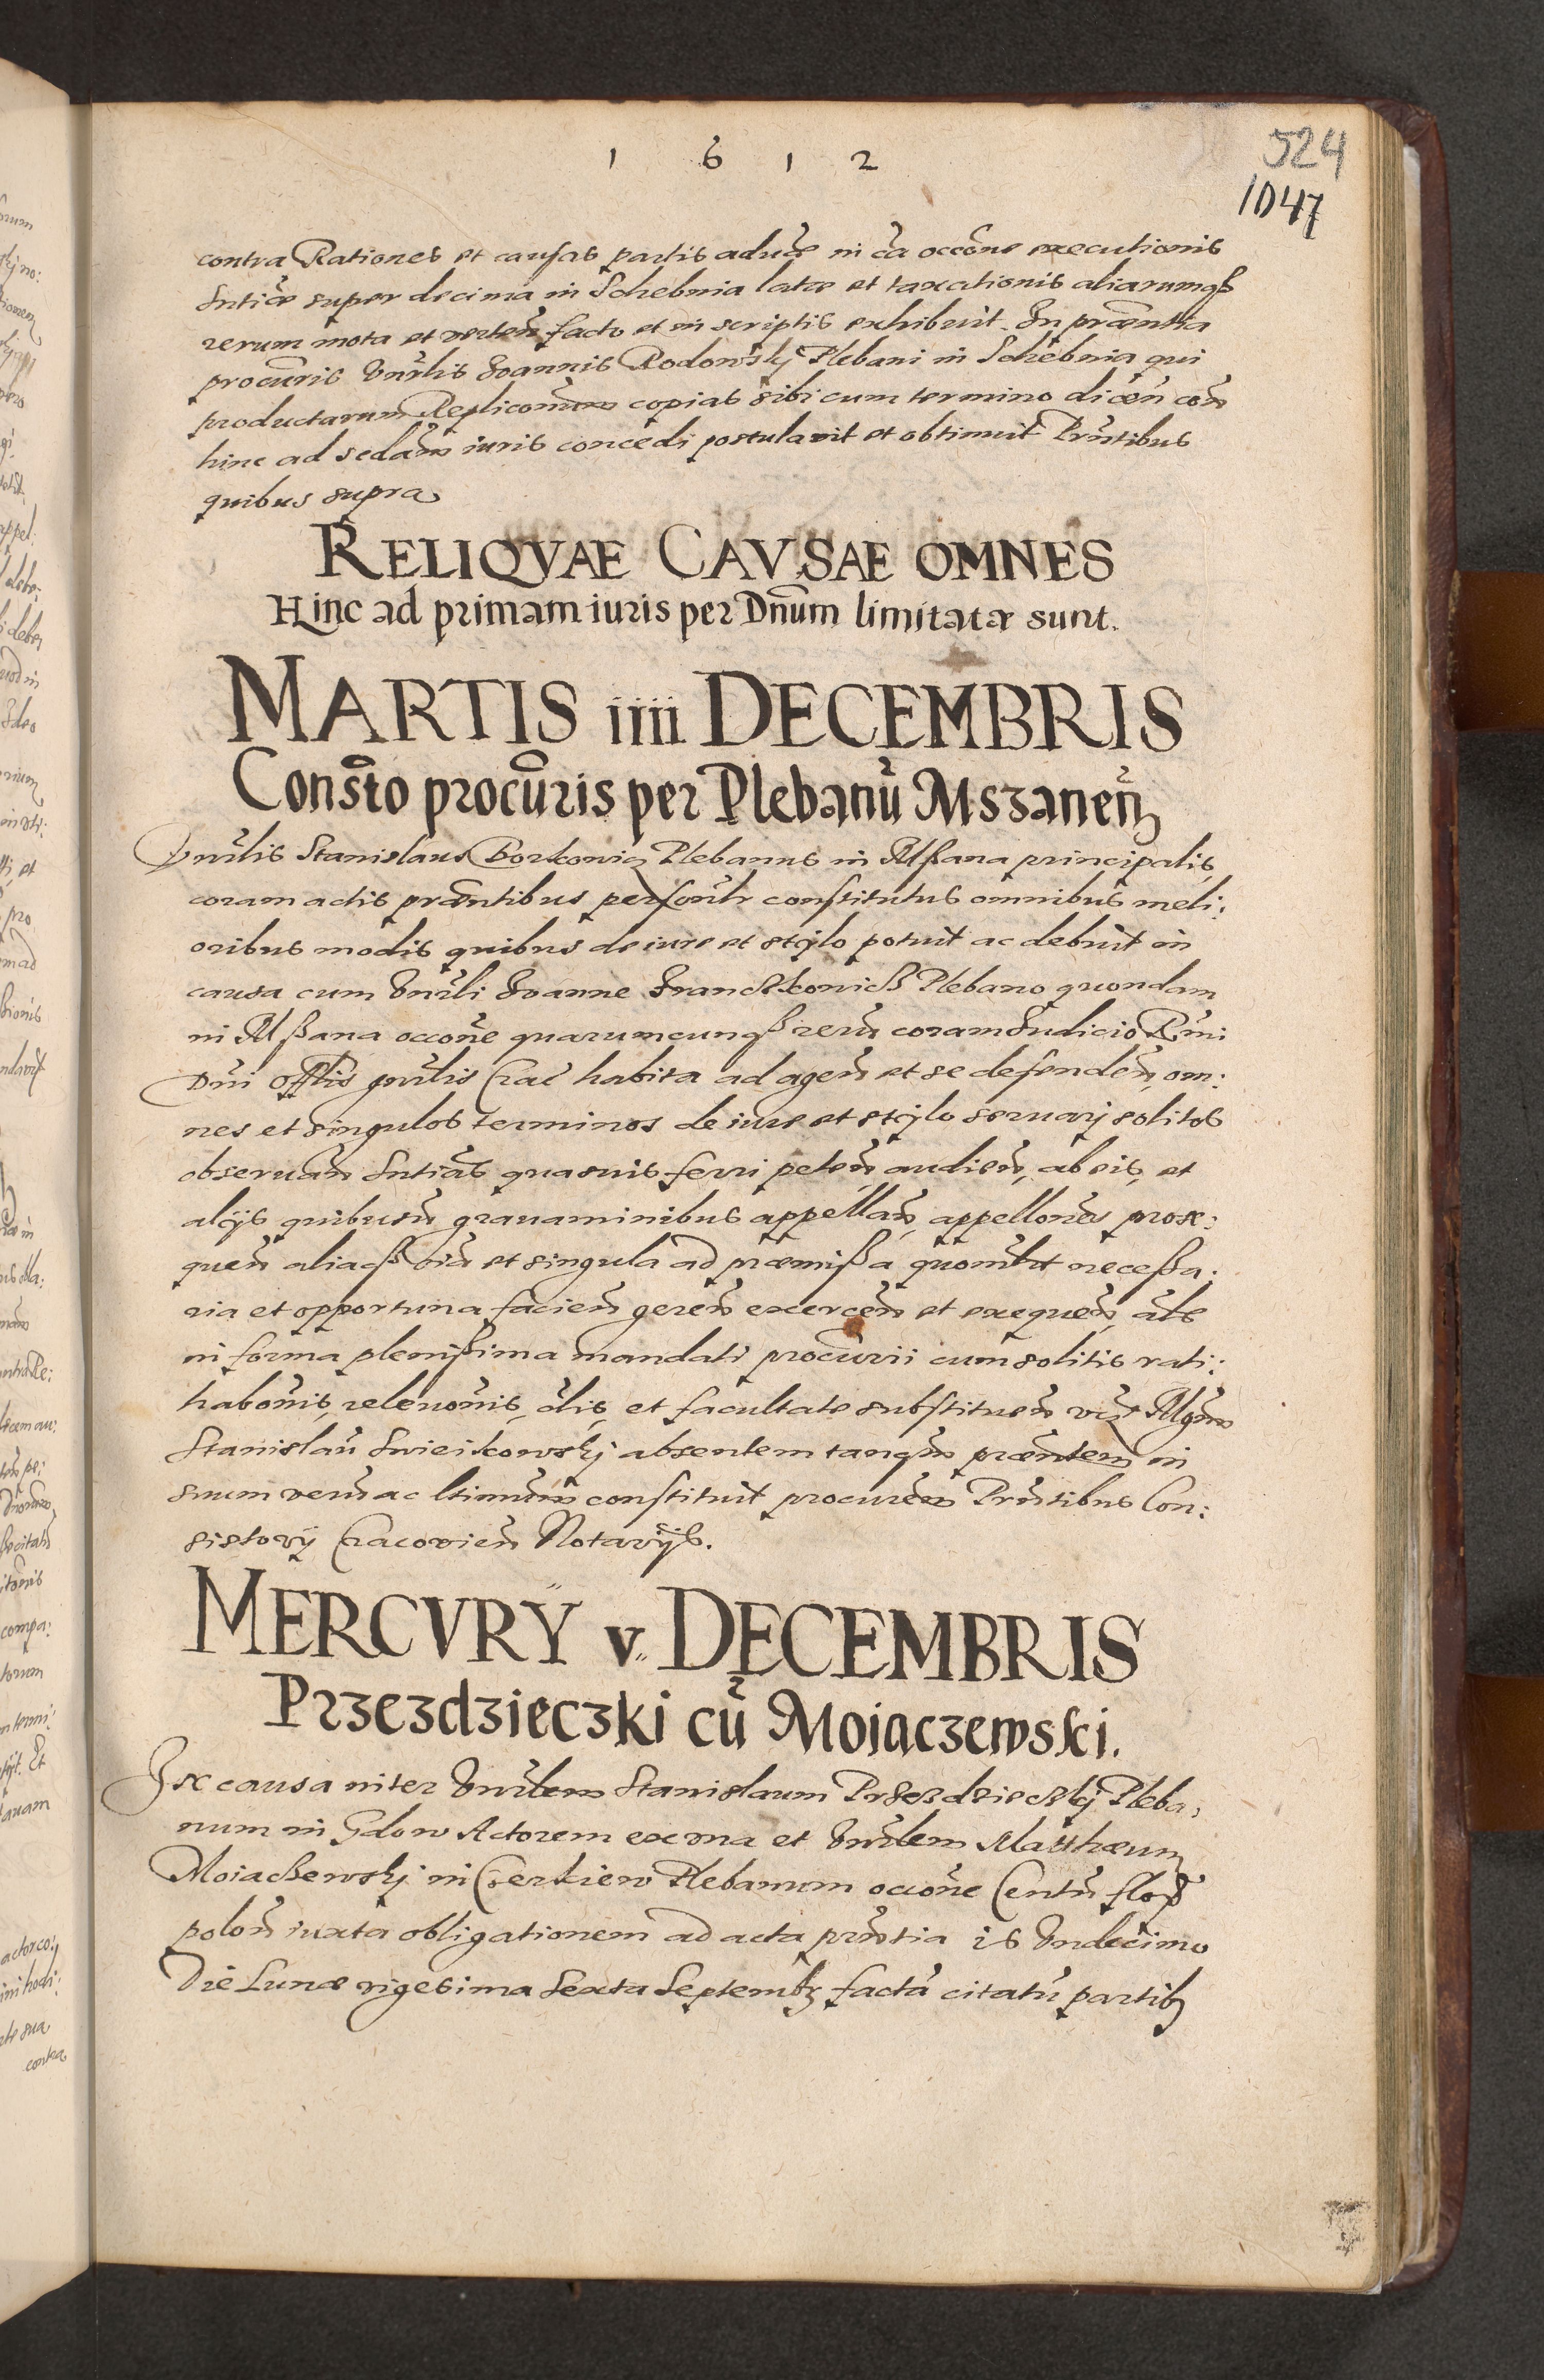 1 6 1 2
524
1047
contra Rationes et causas partis aduæ in ca occõne executionis
Sntiæ super decima in Schebnia latæ et taxationis aliarumqß
rerum mota et verteñ facto et in scriptis exhibuit. In præntia
procuris Vnrlis Joannis Rodowskj Plebani in Schebnia qui
productarum Repliconum copias sibi cum termino diceñ coñ
hinc ad sedam iuris concedi postulauit et obtinuit Prntibus
quibus supra
RELIQVAE CAVSAE OMNES
Hinc ad primam iuris per Dnum limitatæ sunt.
MARTIS iiii DECEMBRIS
Consto procuris per Plebanu Mszaneñ
Vnrlis Stanislaus Borkowicz Plebanus in Mßana principalis
coram actis præntibus personlr constitutus omnibus meli:
oribus modis quibus de iure et stylo potuit ac debuit in
causa cum Vnrli Joanne Plebano quondam
in Mßana occone quarumcunqß reru coram Judicio Rmi
Dni Offlis gnrlis Crac habita ad ageñ et se defendeñ, om:
nes et singulos terminos de iure et stylo seruarj solitos
obseruañ Sntias quasuis ferri peteñ, audieñ, ab eis, et
alijs quibusuis grauaminibus appellañ, appellones prose:
queñ aliaqß oia et singula ad præmißa quomlt neceßa:
ria et opportuna facieñ gereñ exerceñ et exequeñ, als
in forma plenißima mandati procurii cum solitis rati:
habonis, releuonis, clis, et facultate substitueñ vin Mgrm
Stanislau Swieikowskj absentem tanqm præntem in
suum veru ac ltimum constituit procurem Prntibus Con:
sistorij Cracovieñ Notarijs.
MERCVRY v. DECEMBRIS
Przezdzieczki cu Moiaczewski.
In causa inter Vnrlem Stanislaum Przezdzieczkj Pleba:
num in Gdow Actorem ex vna et Vnrlem Matthæum
Moiaczewskj in Cerkiew Plebanum occone Centu flor
poloñ iuxta obligationem ad acta prntia is Vndecimo
Die Lunæ vigesima Sexta Septembr facta citatu partibz